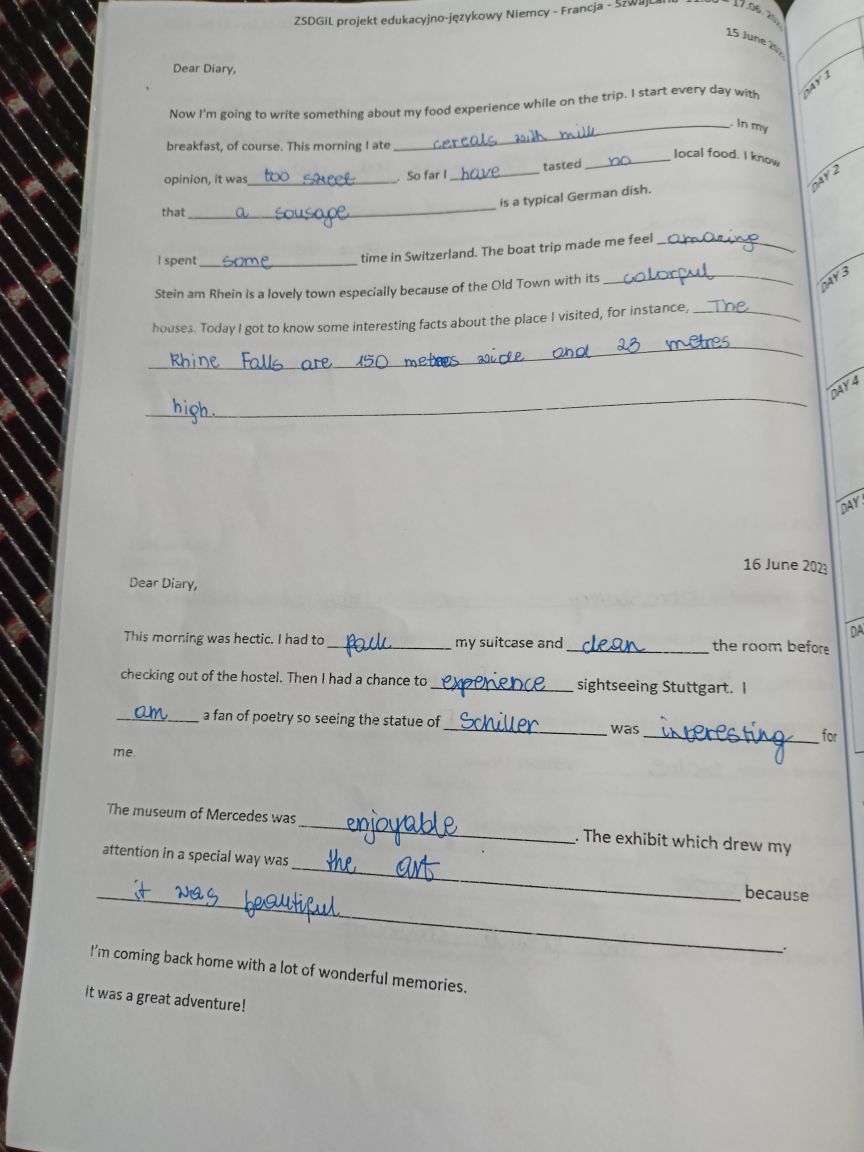 ZSDGiL projekt edukacyjno-językowy Niemcy - Francja - Szwajcaria 11.06 - 17.06.
15 June
Dear Diary,
Now I'm going to write something about my food experience while on the trip. I start every day with
breakfast, of course. This morning I ate cereals with milk. In my
opinion, it was too sweet. So far I have tasted no local food. I know
that a sousage is a typical German dish.
I spent some time in Switzerland. The boat trip made me feel amazing
Stein am Rhein is a lovely town especially because of the Old Town with its colorful
houses. Today I got to know some interesting facts about the place I visited, for instance, The
Rhine Falls are 150 metres wide and 23 metres
high.
16 June 2023
Dear Diary,
This morning was hectic. I had to pack my suitcase and clean the room before
checking out of the hostel. Then I had a chance to experience sightseeing Stuttgart. I
am a fan of poetry so seeing the statue of Schiller was interesting for
me.
The museum of Mercedes was enjoyable. The exhibit which drew my
attention in a special way was the art because
it was beautiful.
I'm coming back home with a lot of wonderful memories.
It was a great adventure!
DAY 1
DAY 2
DAY 3
DAY 4
DAY
DA